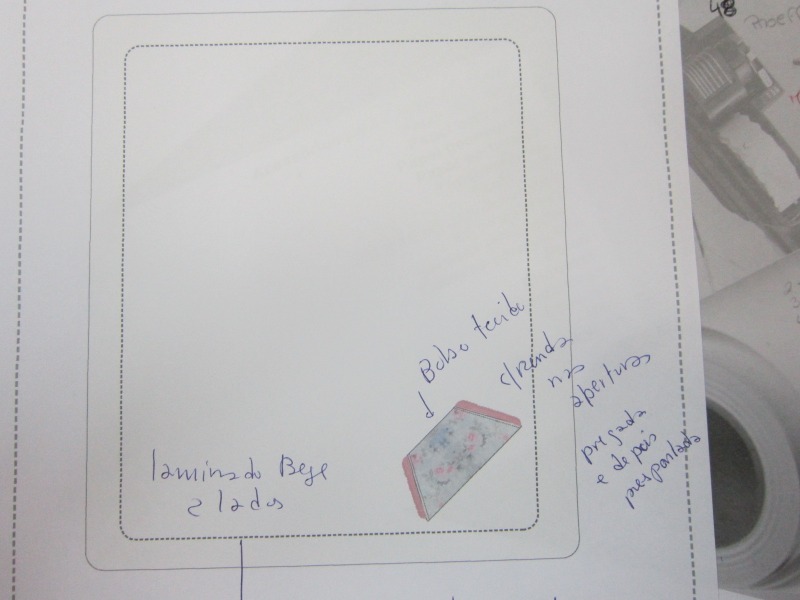 48
Bolso tecido
c/renda
nas
aberturas
pregada
e depois
prespontada
laminado Bege
2 lados